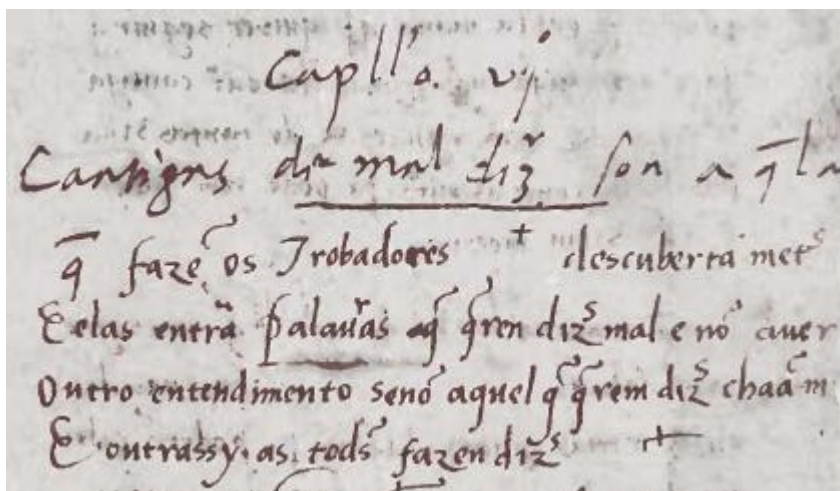 Capll'o. vj
Cantigas de mal diz son a q̄la
q̄ fazē os Trobadores + descuberta met
E elas entrā palauras q̄ q̄ren diz mal e nō auer
Outro entendimento senō aquel q̄ q̄rem diz chaā m
E outrassy. as tods fazen diz +